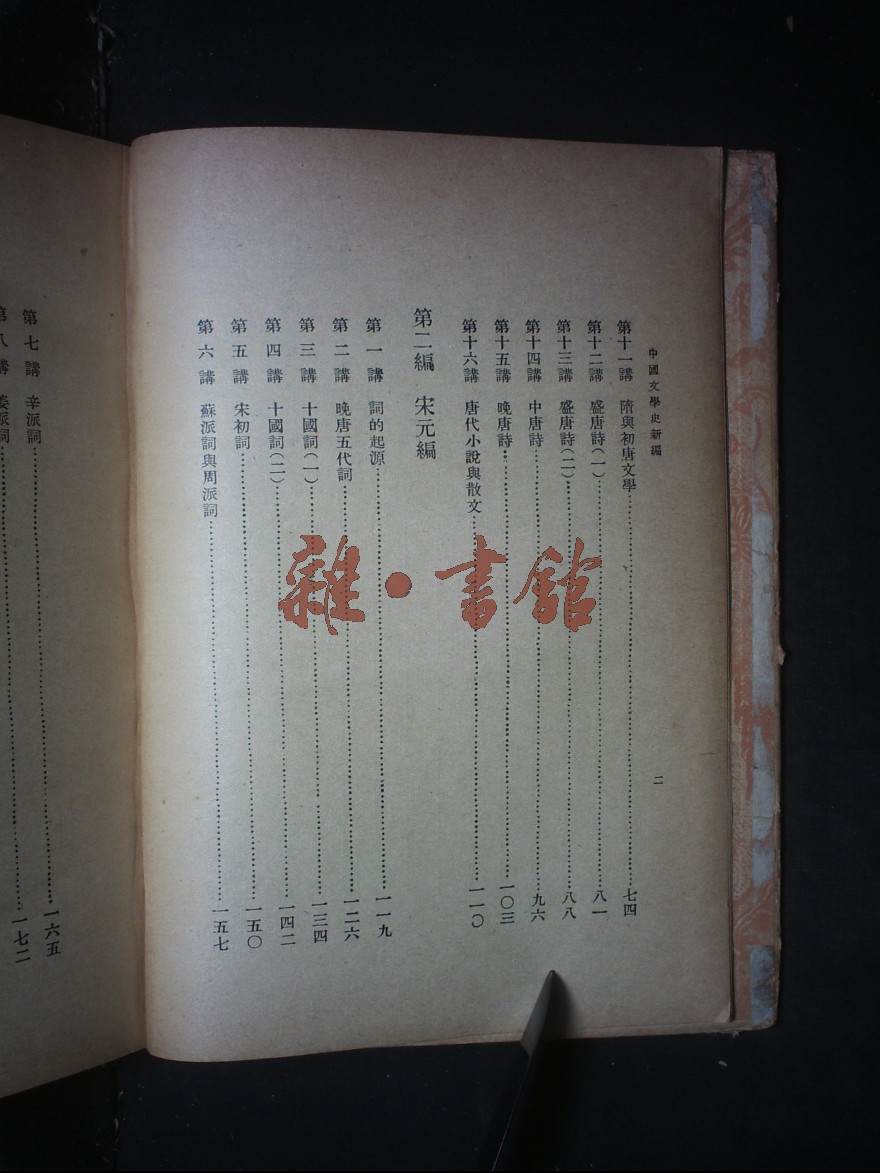 中國文學史新編
二
第十一講 隋與初唐文學……七四
第十二講 盛唐詩(一)……八一
第十三講 盛唐詩(二)……八八
第十四講 中唐詩……九六
第十五講 晚唐詩……一〇三
第十六講 唐代小說與散文……一一〇
第二編 宋元編
第一講 詞的起源……一一九
第二講 晚唐五代詞……一二六
第三講 十國詞(一)……一三四
第四講 十國詞(二)……一四二
第五講 宋初詞……一五〇
第六講 蘇派詞與周派詞……一五七
第七講 辛派詞……一六五
第八講 姜派詞……一七二
雜·書館